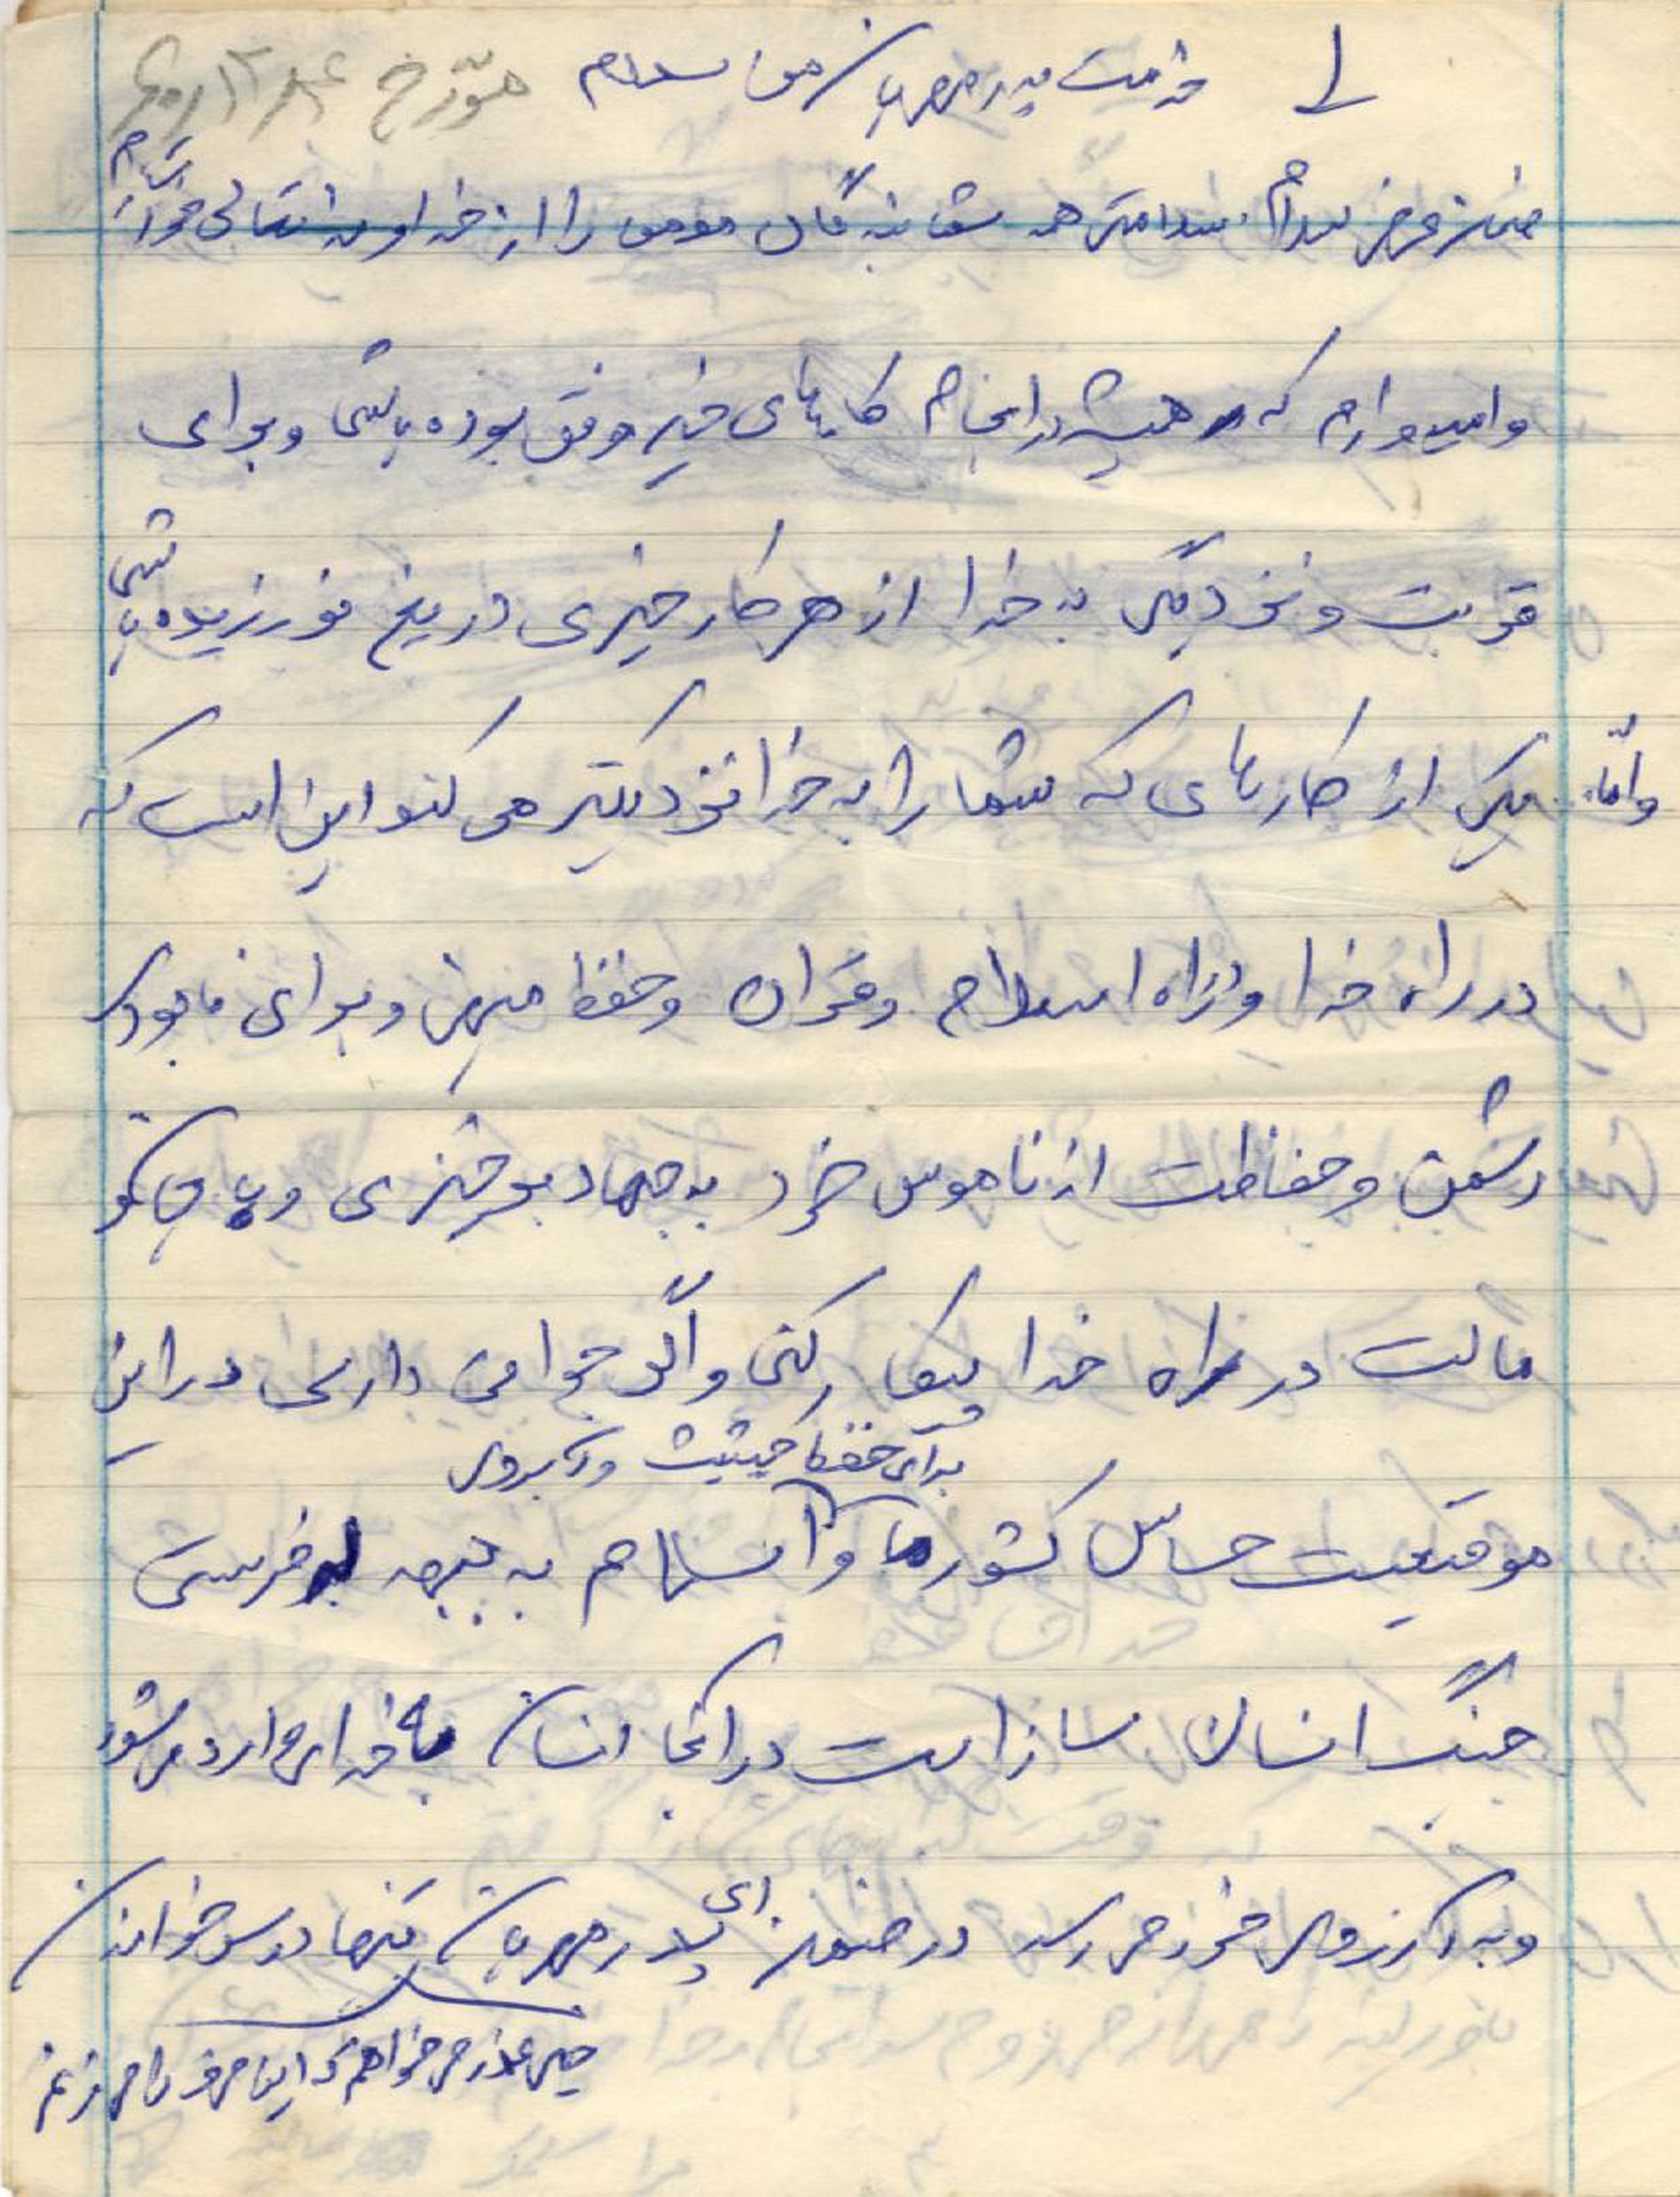 خدمت پدر مهربان من سلام مورخ
ضمن عرض سلام سلامتی همه شما بندگان مومن را از خداوند تعالی خواستارم
و امیدوارم که همیشه در انجام کارهای خیر موفق بوده باشی و برای
قربت و نزدیکی به خدا از هر کار خیری دریغ نورزیده باشی
و امّا یکی از کارهای که شما را به خدا نزدیکتر می کند این است که
در راه خدا و در راه اسلام و قرآن و حفظ میهن و برای نابودی
دشمن و حفاظت از ناموس خود به جهاد برخیزی و با
مالت در راه خدا پیکار کنی و اگر جوانی داری در این
برای حفظ حیثیت و آبروی
موقعیت حساس کشور ما و اسلام به جبهه بفرستی
جنگ انسان ساز است در آنجا انسان به خدای وارد می شود
و به آرزوی خود می رسد در ضمن ای پدر مهربان تنها درس خواندن
خیلی عذر می خواهم که این حرف را می زنم